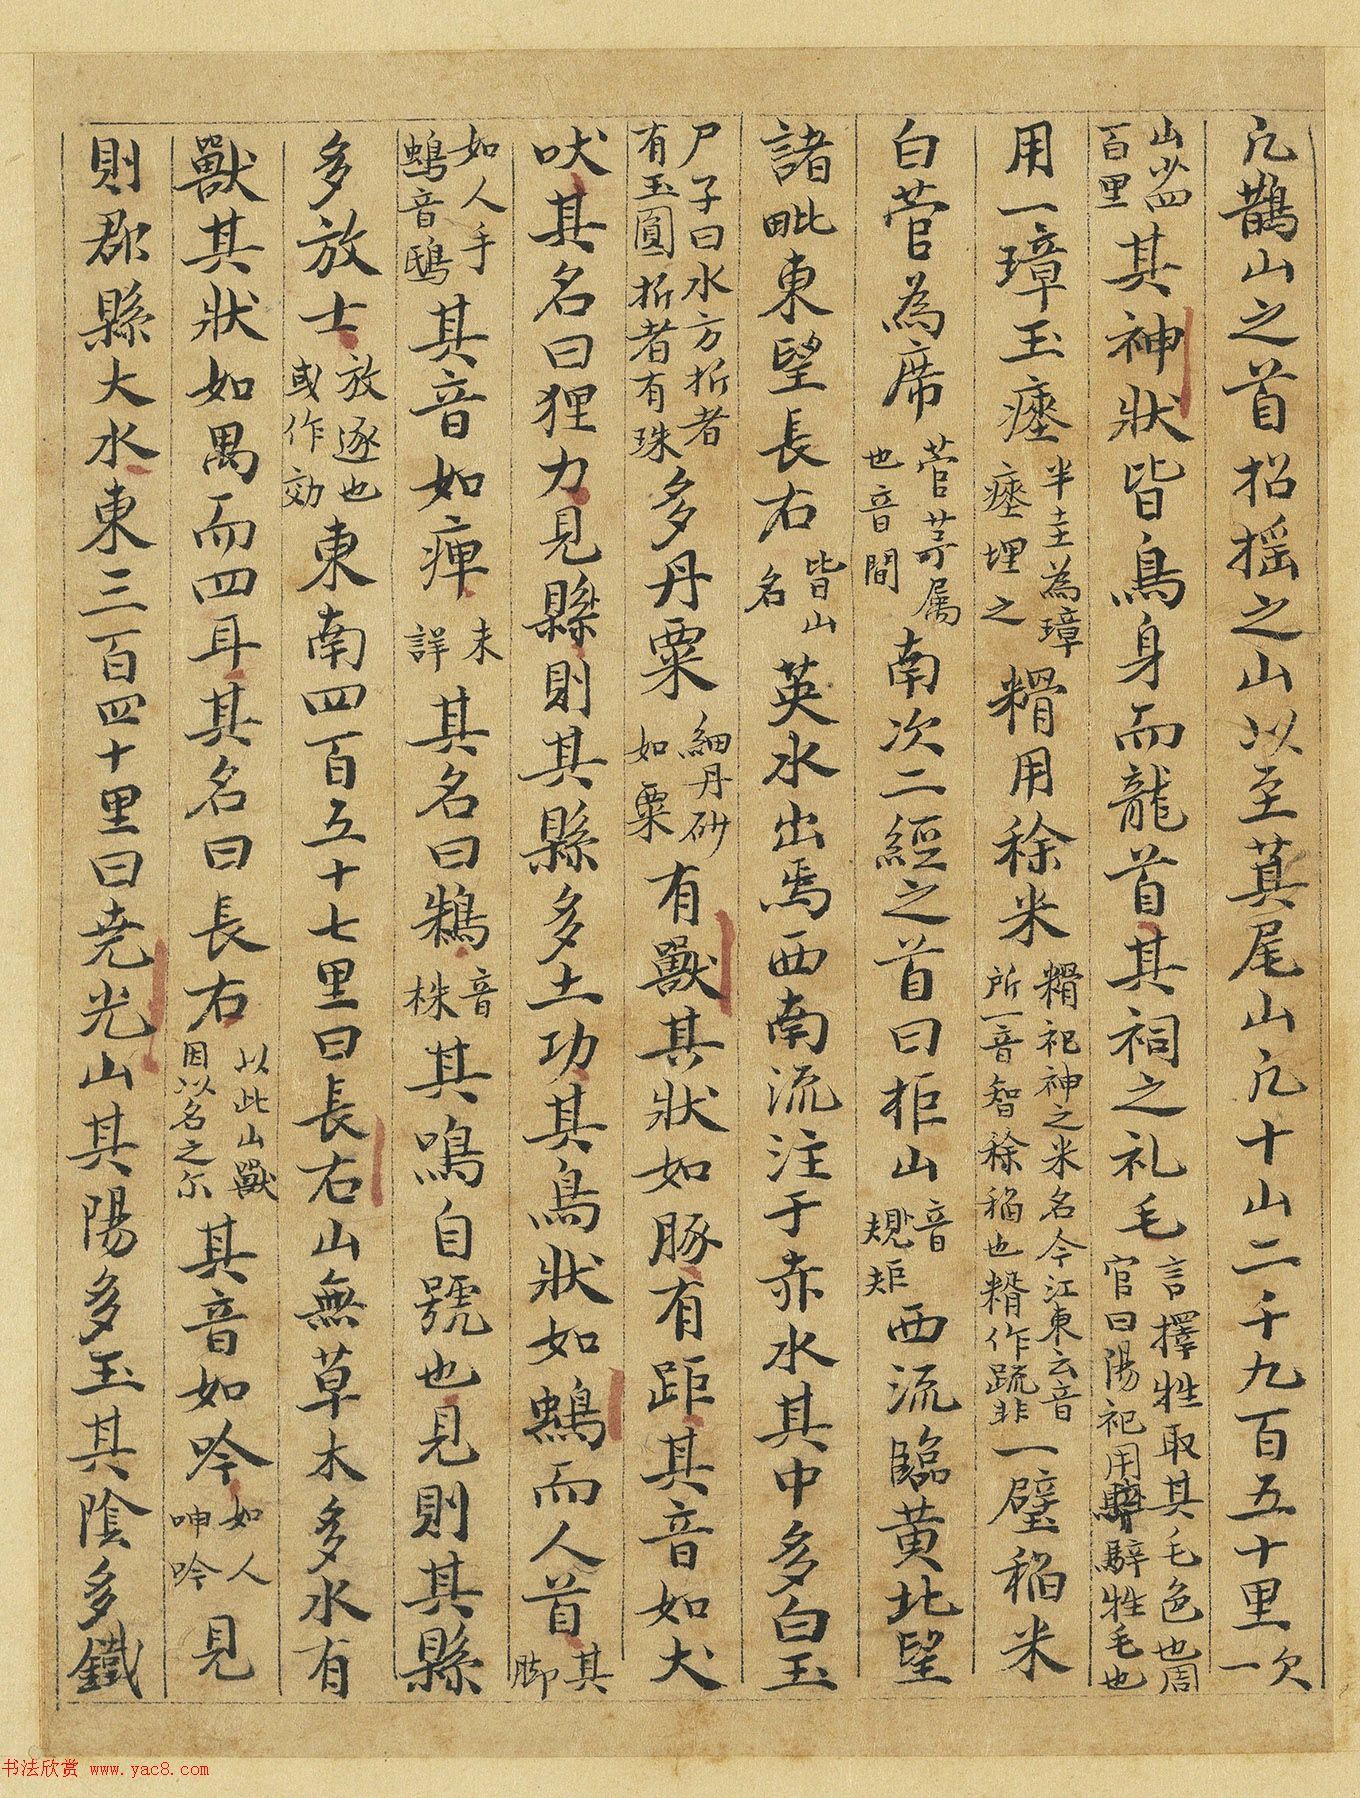 凢鵲山之首招摇之山以至萁尾山凢十山二千九百五十里一次
山𠫤四百里其神狀皆鳥身而龍首其祠之礼毛言擇牲取其毛色也周官曰陽祀用騂牲毛也
用一璋玉瘞半圭為璋瘞埋之糈用稌米糈祀神之米名今江東云音所一音智稌稻也糈作疏非一璧稻米
白菅為席菅茅属也音間南次二經之首曰柜山音規矩西流臨黄北望
諸毗東望長右皆山名英水出焉西南流注于赤水其中多白玉
尸子曰水方折者有玉圓折者有珠多丹粟細丹砂如粟有獸其狀如豚有距其音如犬
吠其名曰狸力見縣則其縣多土功其鳥狀如鴟而人首其脚
如人手鴟音鴟其音如痺未詳其名曰鴸音株其鳴自號也見則其縣
多放士放逐也或作効東南四百五十七里曰長右山無草木多水有
獸其狀如禺而四耳其名曰長右以此山獸因以名之尔其音如吟如人呻吟見
則郡縣大水東三百四十里曰堯光山其陽多玉其陰多鐵
书法欣赏 www.yac8.com